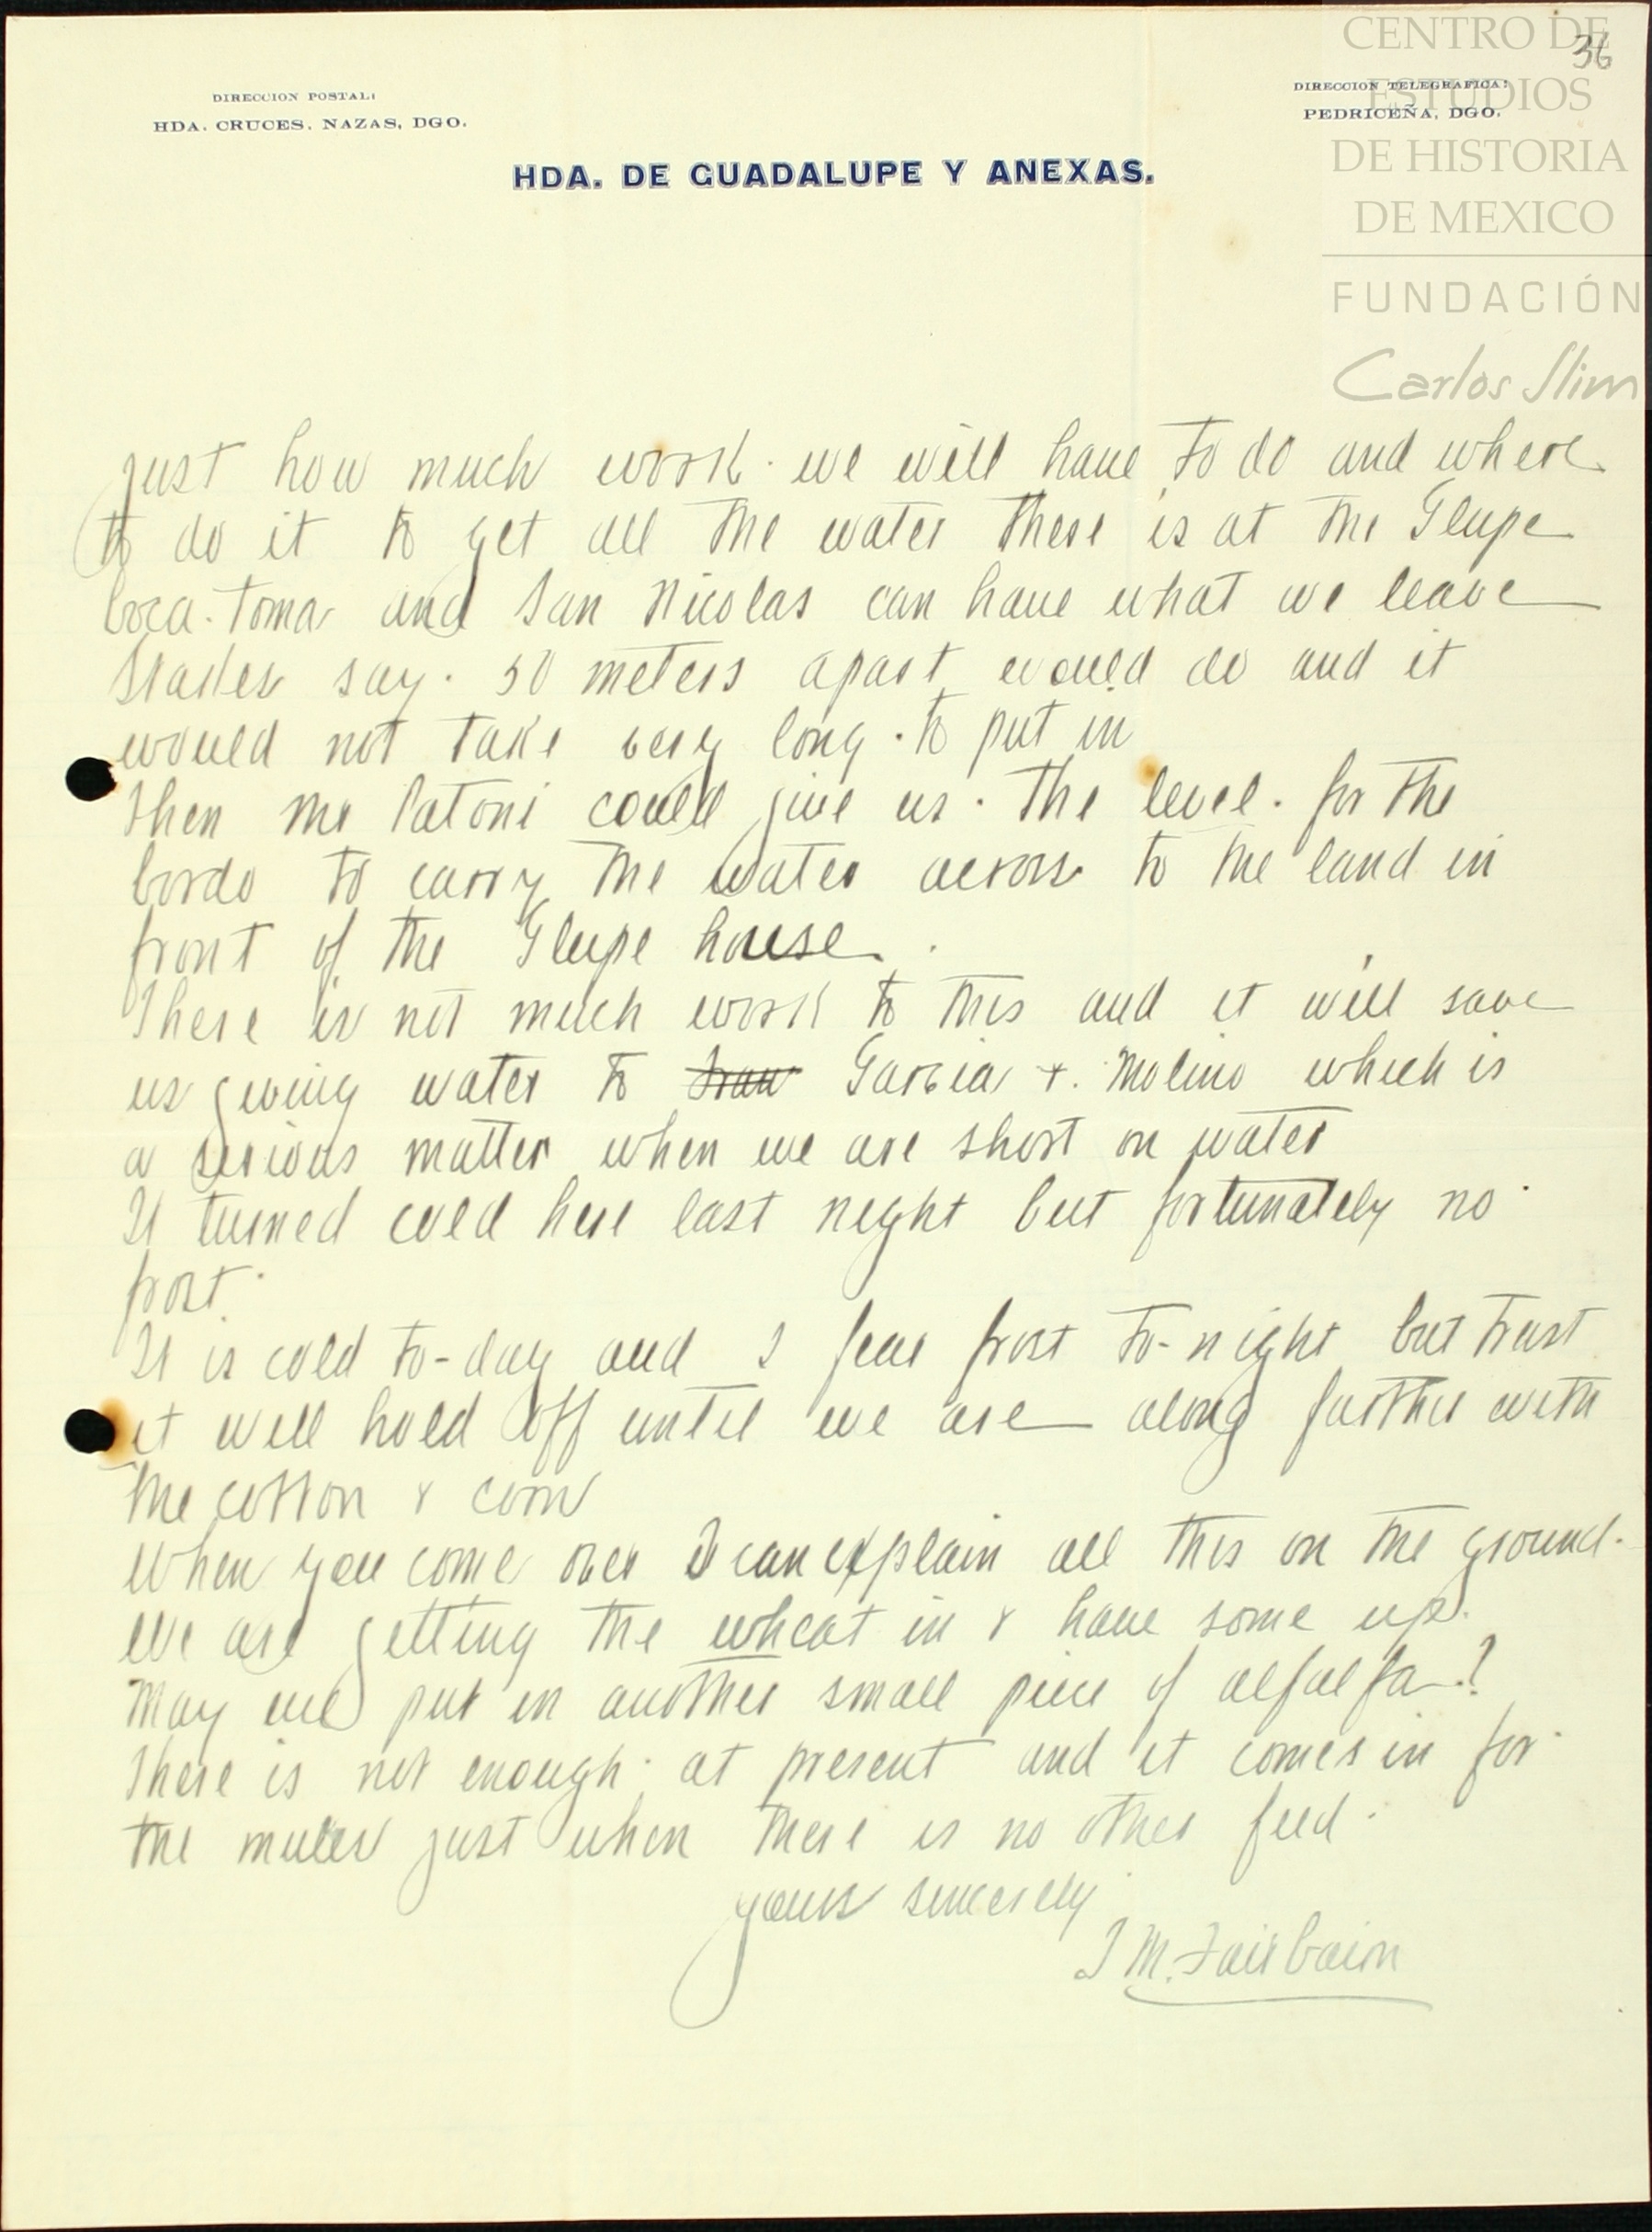 CENTRO DE
ESTUDIOS
DE HISTORIA
DE MEXICO
FUNDACIÓN
Carlos Slim
36
DIRECCION POSTAL:
HDA. CRUCES, NAZAS, DGO.
DIRECCION TELEGRAFICA:
PEDRICEÑA, DGO.
HDA. DE GUADALUPE Y ANEXAS.
just how much work we will have to do and where
to do it to get all the water there is at the Glupe
boca-toma and San Nicolas can have what we leave
Stakes say. 50 meters apart would do and it
would not take very long to put in
Then Mr Patoni could give us the level for the
bordo to carry the water across to the land in
front of the Glupe house.
There is not much work to this and it will save
us giving water to Garcia + Molino which is
a serious matter when we are short on water
It turned cold here last night but fortunately no
frost.
It is cold to-day and I fear frost to-night but trust
it will hold off until we are along further with
the cotton & corn
When you come over I can explain all this on the ground.
We are getting the wheat in & have some up.
May we put in another small piece of alfalfa?
There is not enough at present and it comes in for
the mules just when there is no other feed.
yours sincerely
J M. Fairbairn